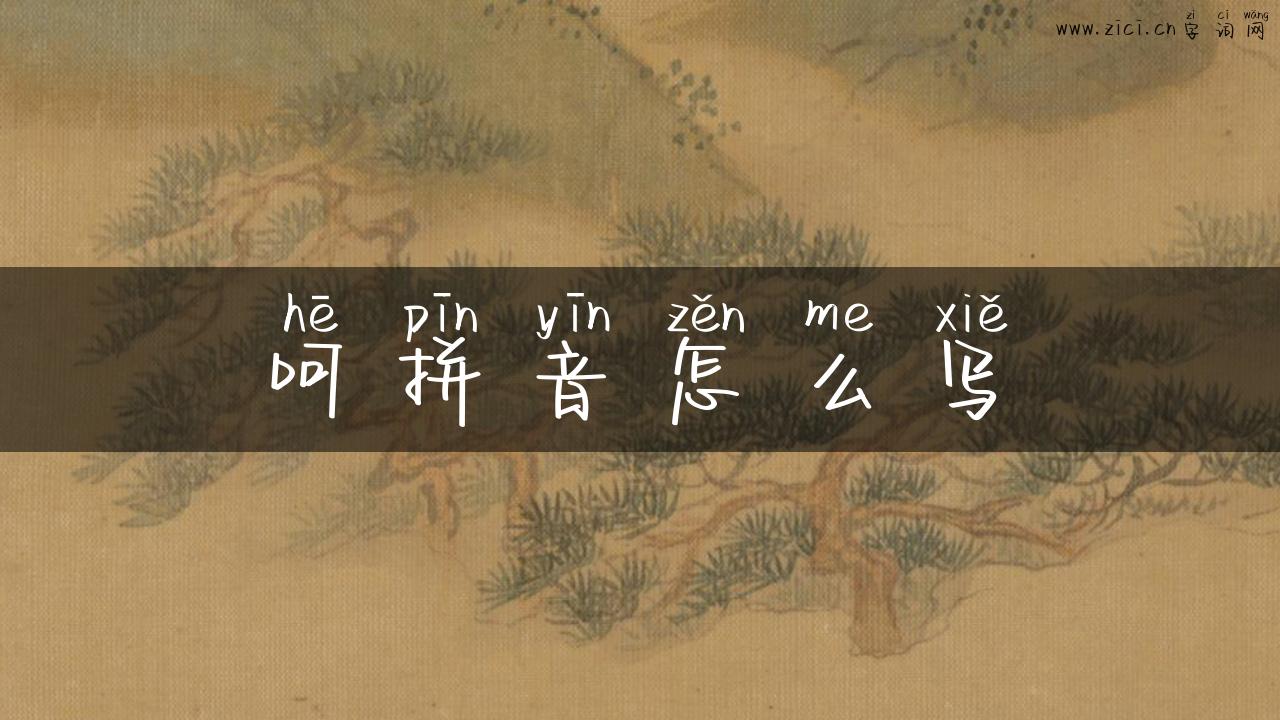 zì cí wǎng
www.zīcī.cn 字 词 网
hē pīn yīn zěn me xiě
呵 拼 音 怎 么 写